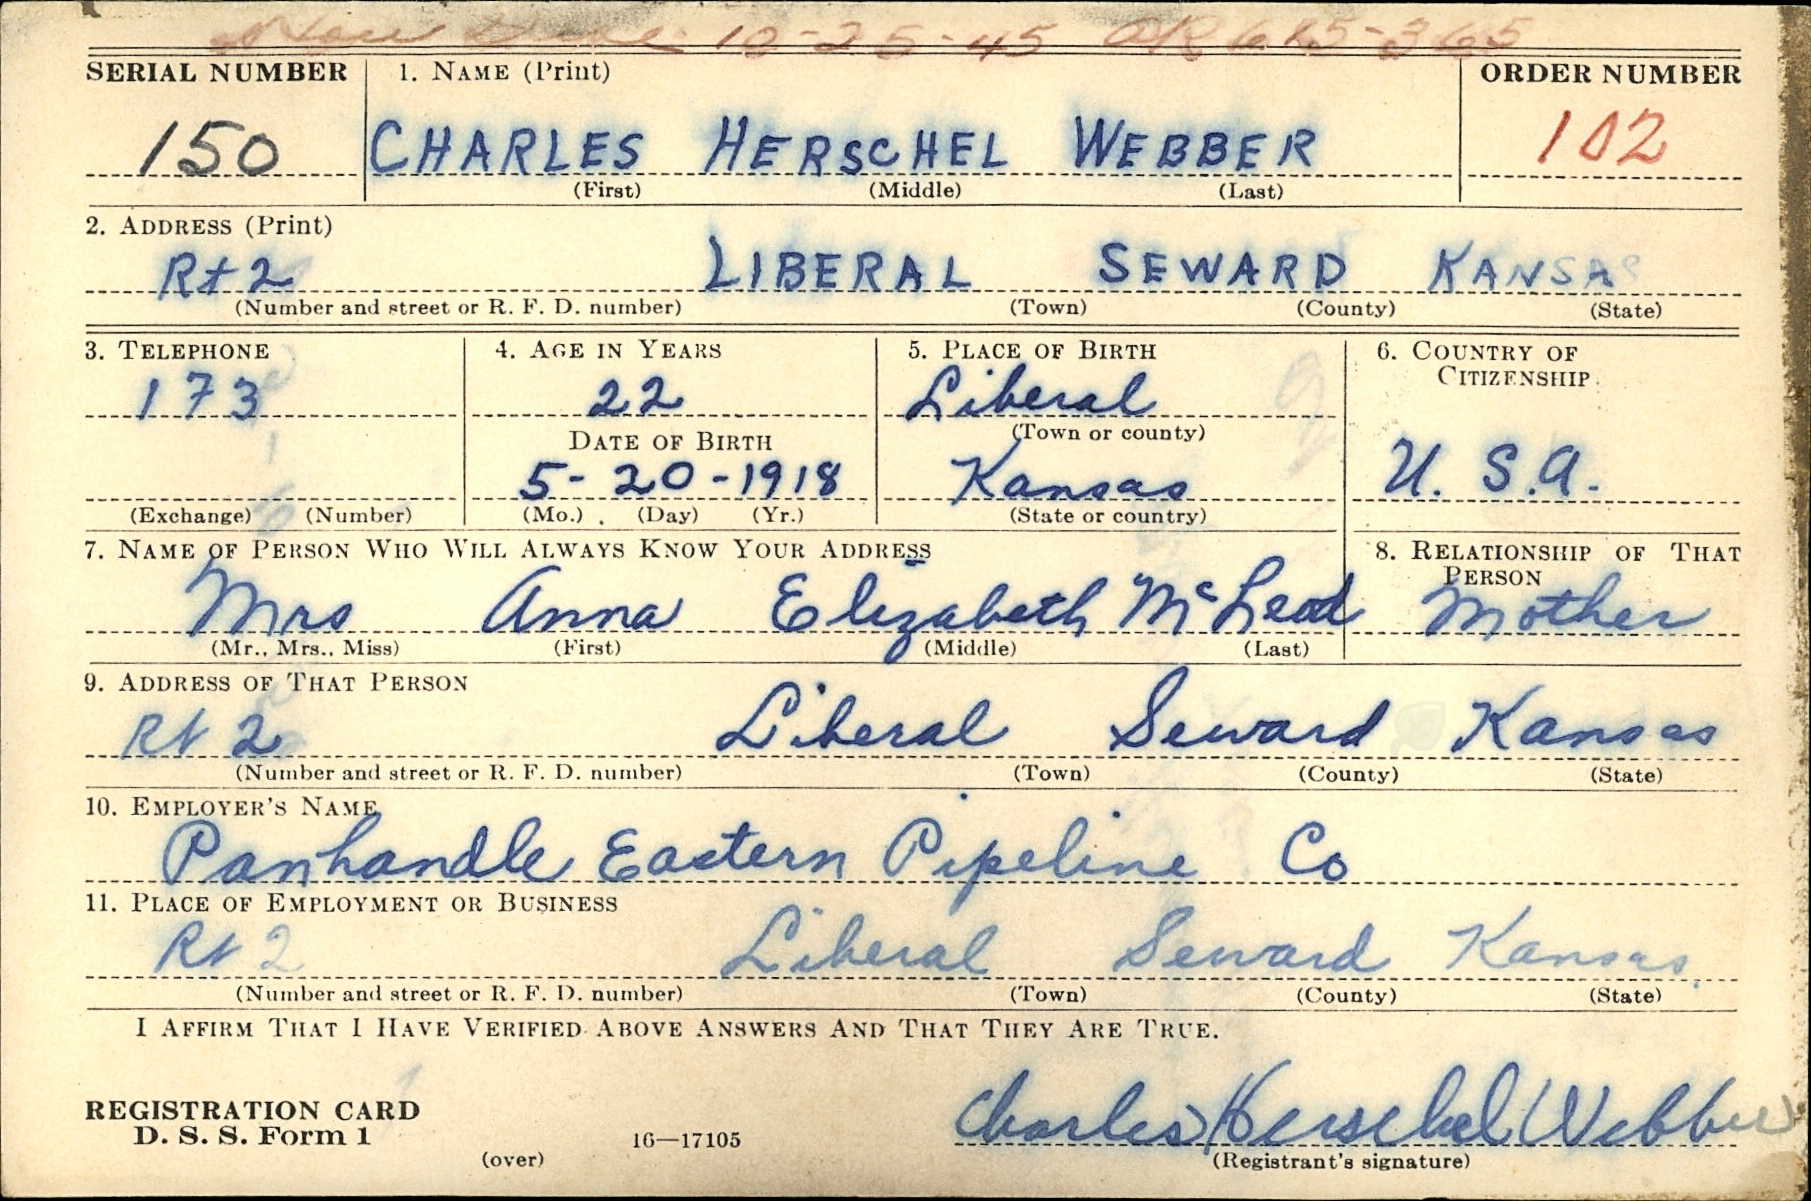 10-25-45
SERIAL NUMBER 1. NAME (Print) ORDER NUMBER
150 CHARLES HERSCHEL WEBBER 102
(First) (Middle) (Last)
2. ADDRESS (Print)
Rt 2 LIBERAL SEWARD KANSAS
(Number and street or R. F. D. number) (Town) (County) (State)
3. TELEPHONE 4. AGE IN YEARS 5. PLACE OF BIRTH 6. COUNTRY OF CITIZENSHIP
173 22 Liberal
DATE OF BIRTH (Town or county)
5-20-1918 Kansas U.S.A.
(Exchange) (Number) (Mo.) (Day) (Yr.) (State or country)
7. NAME OF PERSON WHO WILL ALWAYS KNOW YOUR ADDRESS 8. RELATIONSHIP OF THAT PERSON
Mrs Anna Elizabeth McLeod Mother
(Mr., Mrs., Miss) (First) (Middle) (Last)
9. ADDRESS OF THAT PERSON
Rt 2 Liberal Seward Kansas
(Number and street or R. F. D. number) (Town) (County) (State)
10. EMPLOYER'S NAME
Panhandle Eastern Pipeline Co
11. PLACE OF EMPLOYMENT OR BUSINESS
Rt 2 Liberal Seward Kansas
(Number and street or R. F. D. number) (Town) (County) (State)
I AFFIRM THAT I HAVE VERIFIED ABOVE ANSWERS AND THAT THEY ARE TRUE.
Charles Herschel Webber
REGISTRATION CARD
D. S. S. Form 1 16—17105
(over) (Registrant's signature)